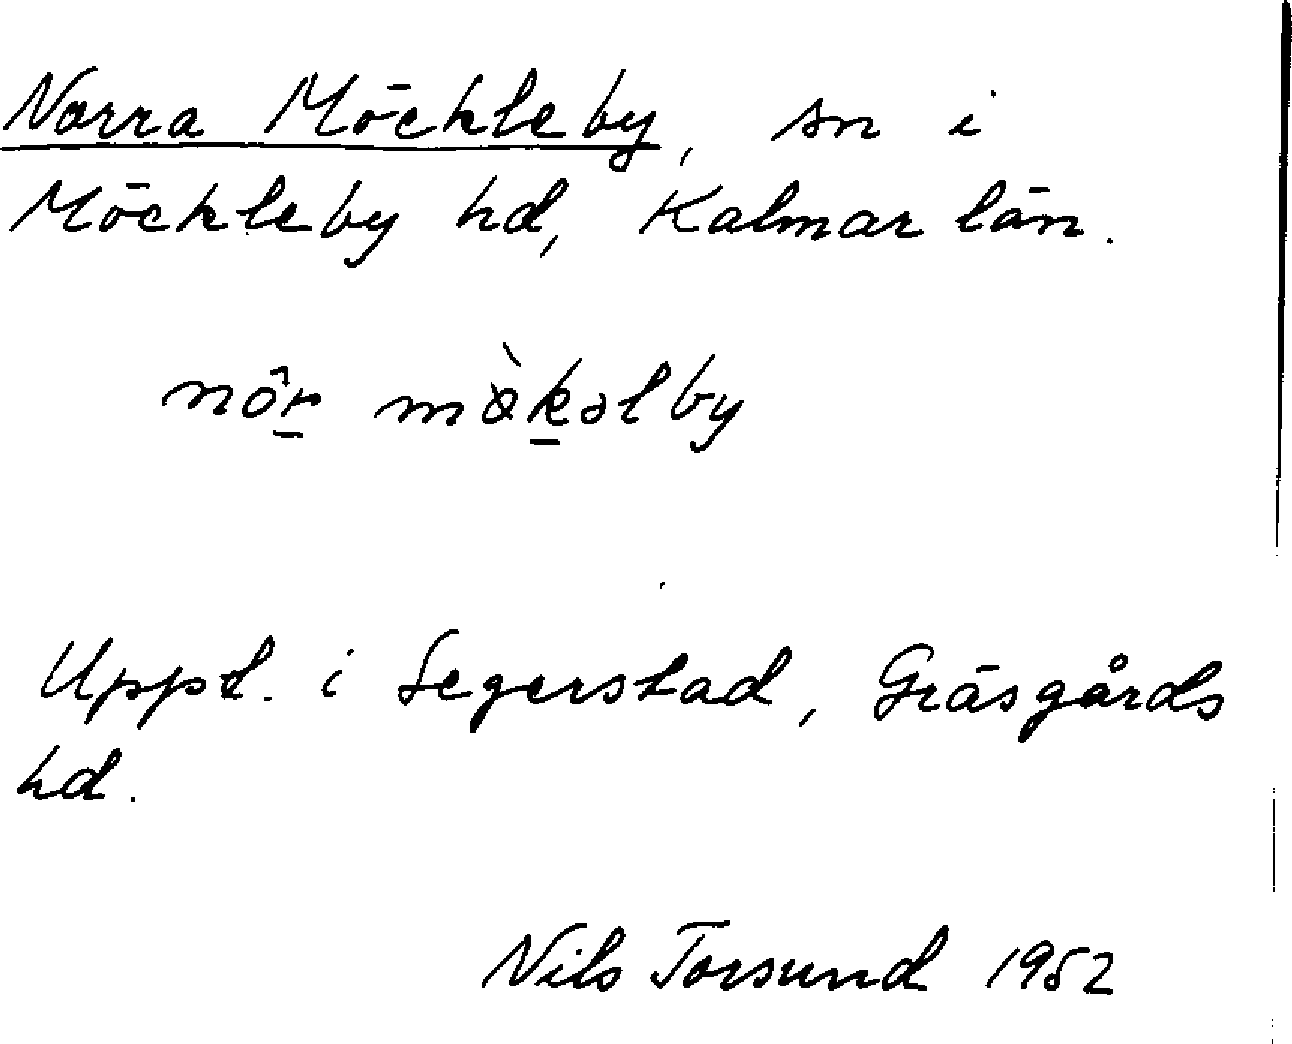 Norra Möckleby, sn i
Möckleby hd, Kalmar län.
nôr mø̀kəlby
Uppt. i Segerstad, Gräsgårds
hd.
Nils Torsund 1952